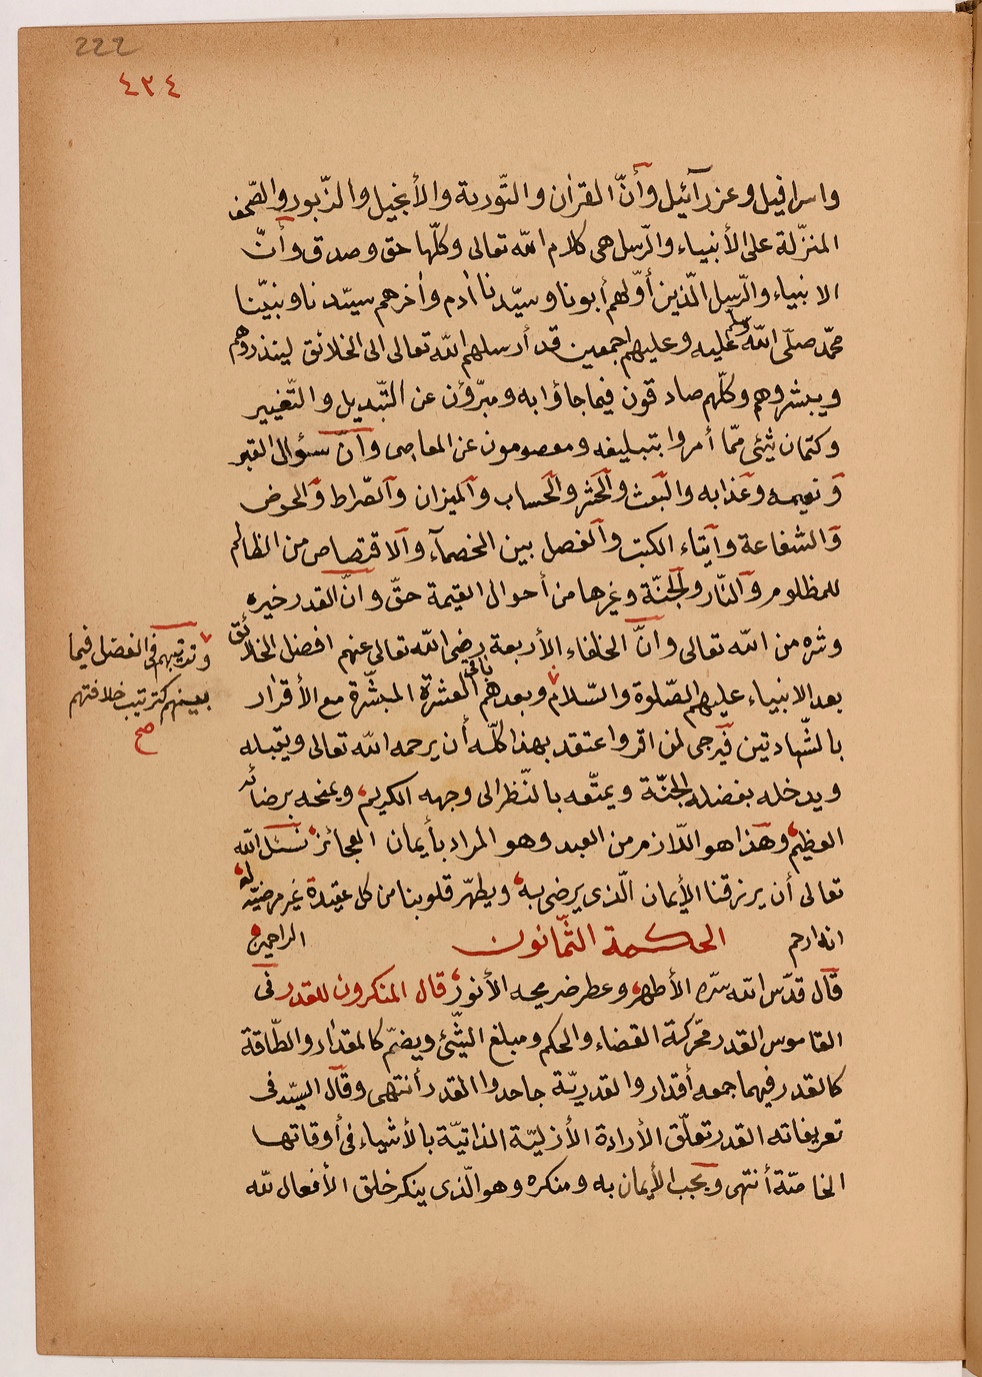 222
٤٣٤
واسرافيل وعزرآئيل وأنّ القرأن والتّورية والأنجيل والزّبور والصّحف
المنزّلة على الأنبياء والرّسل هى كلام الله تعالى وكلّها حق وصدق وأنّ
الانبياء والرّسل الّذين أوّلهم أبونا وسيّدنا أدم وأخرهم سيّدنا ونبيّنا
محمّد صلّى الله عليه وسلم وعليهم اجمعين قد أرسلهم الله تعالى الى الخلائق لينذروهم
ويبشروهم وكلّهم صادقون فيما جاؤابه ومبرّؤن عن التّبديل والتّغيير
وكتمان شئى ممّا أمروا بتبليغه ومعصومون عن المعاصى وأنّ سئوال القبر
ونعيمه وعذابه والبعث والحشر والحساب والميزان والصّراط والحوض
والشفاعة وايتاء الكتب والفصل بين الخصمآء والاقتصاص من الظالم
للمظلوم والنّار والجنّة وغرها من أحوال القيمة حقّ وانّ القدر خيره
وشره من الله تعالى وانّ الخلفاء الأربعة رضى الله تعالى عنهم افضل الخلائق
بعد الانبياء عليهم الصّلوة والسّلام وبعدهم باقى العشرة المبشّرة مع الأقرار
بالشّهادتين فيرجى لمن اقر واعتقد بهذا كلّه أن يرحمه الله تعالى ويقبله
ويدخله بفضله الجنّة ويمتّعه بالنّظر الى وجهه الكريم ويمنحه برضائه
العظيم وهذا هو اللّازم من العبد وهو المراد بأيمان العجائز نسئل الله
تعالى أن يرزقنا الأيمان الّذى يرضى به ويطهّر قلوبنا من كل عقيدة غير مرضيّة له
انه ارحم الراحمين
الحكمة الثّمانون
قال قدّس الله سرّه الأطهر وعطر ضريحه الأنور قال المنكرون للقدر فى
القاموس القدر محّركة القضاء والحكم ومبلغ الشّئى ويضمّ كالمقدار والطّاقة
كالقدر فيهما جمعه أقدار والقدريّة جاحدوا القدر أنتهى وقال السيّد فى
تعريفاته القدر تعلّق الأرادة الأزليّة الذاتيّة بالأشياء فى أوقاتها
الخاصّة أنتهى ويجب الأيمان به ومنكره وهو الّذى ينكر خلق الأفعال لله
وترتيبهم فى الفضل فيما
بينهم كترتيب خلافتهم
صح